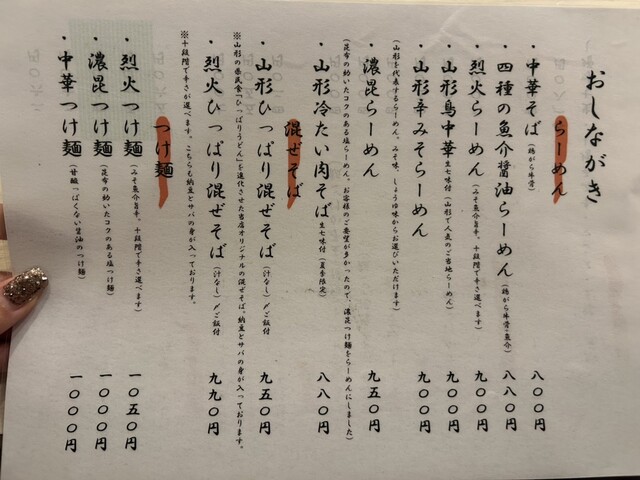 おしながき
らーめん
・中華そば（鶏がら牛骨） 八〇〇円
・四種の魚介醤油らーめん（鶏がら牛骨・魚介） 八八〇円
・烈火らーめん（みそ魚介旨辛。十段階で辛さ選べます） 九五〇円
・山形鳥中華 生七味付（山形で人気のご当地らーめん） 九〇〇円
・山形辛みそらーめん 九〇〇円
（山形を代表するらーめん。みそ味、しょうゆ味からお選びいただけます）
・濃昆らーめん 九五〇円
（昆布の効いたコクのある塩らーめん。お客様のご要望が多かったので、濃昆つけ麺をらーめんにしました）
・山形冷たい肉そば 生七味付（夏季限定） 八八〇円
混ぜそば
・山形ひっぱり混ぜそば（汁なし）〆ご飯付 九五〇円
※山形の県民食「ひっぱりうどん」を進化させた当店オリジナルの混ぜそば。納豆とサバの身が入っております。
・烈火ひっぱり混ぜそば（汁なし）〆ご飯付 九九〇円
※十段階で辛さが選べます。こちらも納豆とサバの身が入っております。
つけ麺
・烈火つけ麺（みそ魚介旨辛。十段階で辛さ選べます） 一〇五〇円
・濃昆つけ麺（昆布の効いたコクのある塩つけ麺） 一〇〇〇円
・中華つけ麺（甘酸っぱくない醤油のつけ麺） 一〇〇〇円